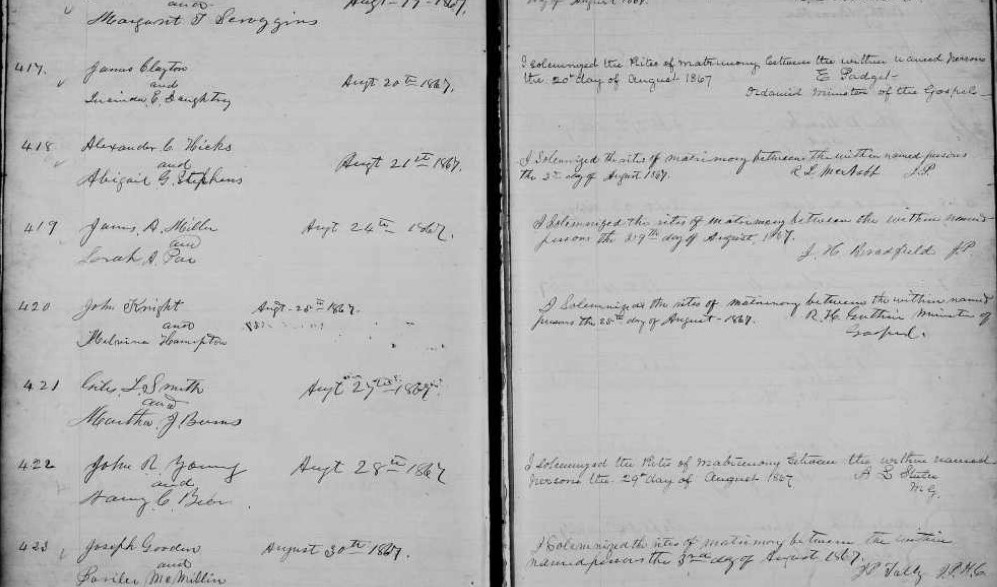 and
Margaret T Scroggins
Augt-17-1867.
day of August 1867.
417.
James Clayton
and
Lucinda E. Daughtry
Augt 20th 1867.
I solemnized the Rites of matrimony between the within named persons
the 20th day of August 1867
E Padget
Ordained Minister of the Gospel
418
Alexander C Hicks
and
Abigail G. Stephens
Augt 21st 1867.
I Solemnized the rites of matrimony between the within named persons
the day of August 1867.
R L McNabb J.P.
419
James A. Miller
and
Sarah A
Augt 24th 1867.
I Solemnized the rites of matrimony between the within named
persons the 29th day of August, 1867.
J. H. Bradfield J.P.
420
John Knight
and
Melvina Hampton
Augt-28th 1867.
I Solemnized the rites of matrimony between the within named
persons the 28th day of August-1867.
R. H. Guthrie Minister of
Gospel.
421
L. Smith
and
Martha J Burns
Augt 27th 1867.
422
John R. Young
and
Nancy C.
Augt 28th 1867
I solemnized the Rites of Matrimony between the within named
persons the 29th day of August 1867
A L
M.G.
423
Joseph Gooden
and
McMillin
August 30th 1867.
I Solemnized the rites of matrimony between the within
named persons the 3rd day of August 1867.
J.P.H.C.